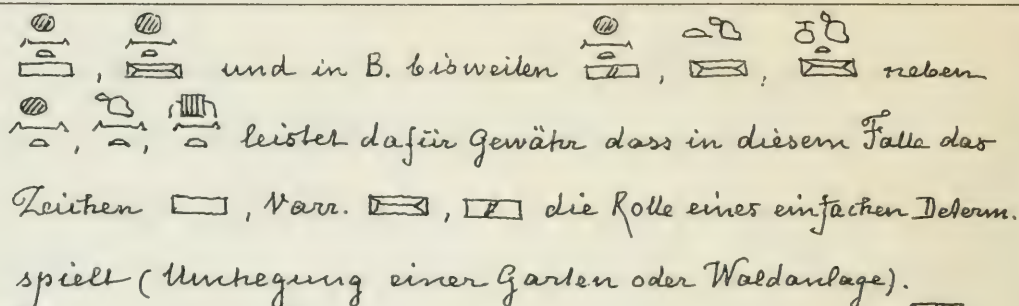 , und in B. bisweilen , , neben
, , leistet dafür Gewähr dass in diesem Falle das
Zeichen , Varr. , die Rolle eines einfachen Determ.
spielt (Umhegung einer Garten oder Waldanlage).